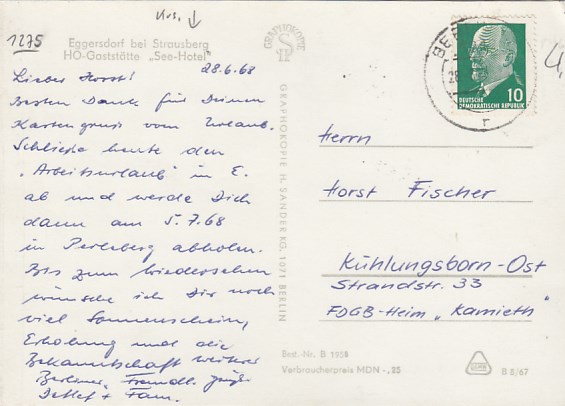 1275
Eggersdorf bei Strausberg
HO-Gaststätte „See-Hotel"
28.6.68
Lieber Horst!
Besten Dank für Deinen
Kartengruß vom Urlaub.
Schließe heute den
„Arbeitsurlaub" in E.
ab und werde Dich
dann am 5.7.68
in Perleberg abholen.
Bis zum Wiedersehen
wünsche ich Dir noch
viel Sonnenschein,
Erholung und die
Bekanntschaft weiterer
Berliner Freundl. grüßt
Detlef + Fam.
GRAPHOKOPIE
GRAPHOKOPIE H. SANDER KG, 1071 BERLIN
10
DEUTSCHE
DEMOKRATISCHE REPUBLIK
Herrn
Horst Fischer
Kühlungsborn-Ost
Strandstr. 33
FDGB-Heim „Kamieth"
Best.-Nr. B 1958
Verbraucherpreis MDN -,25
B 8/67